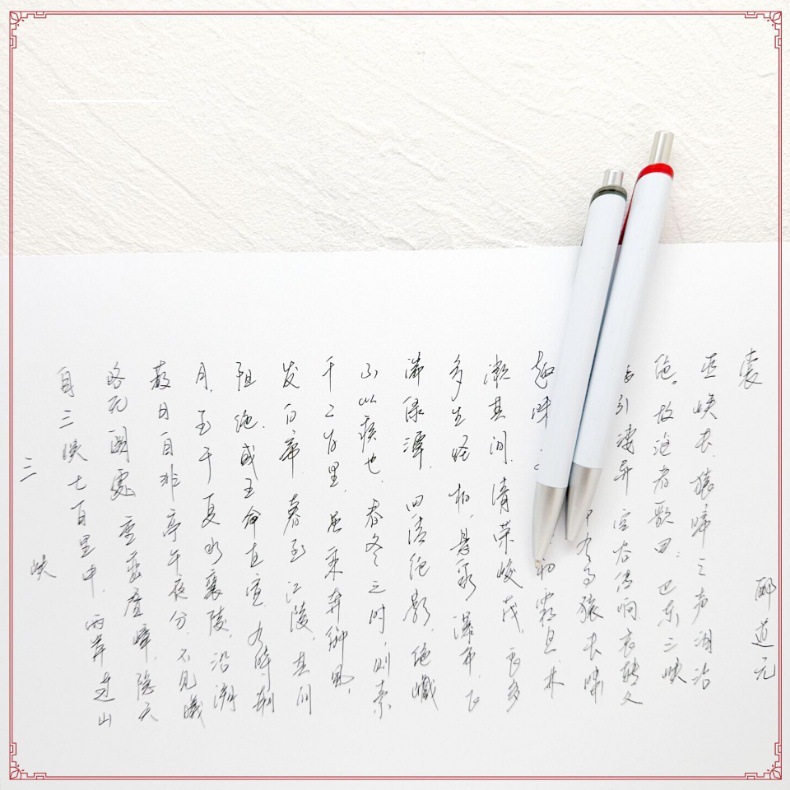 三峡
自三峡七百里中，两岸连山
略无阙处，重峦叠嶂，隐天
蔽日，自非亭午夜分，不见曦
月。至于夏水襄陵，沿溯
阻绝。或王命急宣，有时朝
发白帝，暮至江陵，其间
千二百里，虽乘奔御风，
不以疾也。春冬之时，则素
湍绿潭，回清绝影，绝巘
多生怪柏，悬泉瀑布，飞
漱其间，清荣峻茂，良多
趣味。初霜旦，林
有高猿长啸
引凄异，空谷传响，哀转久
绝。故渔者歌曰：巴东三峡
巫峡长，猿啼三声泪沾
裳
郦道元